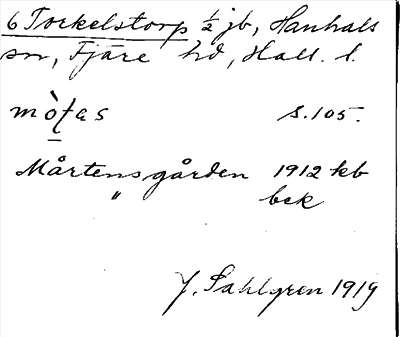 6 Torkelstorp ½ jb, Hanhals
sn, Fjäre hd, Hall. l.
mò̱ʈas s. 105.
Mårtensgården 1912 kb
" bek
J. Sahlgren 1919